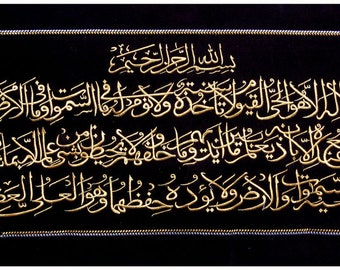 بسم الله الرحمن الرحيم
الله لا إله إلا هو الحي القيوم لا تأخذه سنة ولا نوم له ما في السموات وما في الأرض
عنده إلا بإذنه يعلم ما بين أيديهم وما خلفهم ولا يحيطون بشيء من علمه إلا بما
السموات والأرض ولا يؤده حفظهما وهو العلي العظيم